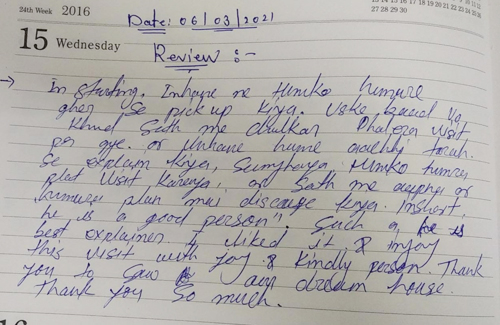 24th Week 2016
15 Wednesday
Date: 06/03/2021
Review :-
→ In starting. Inhone ne Humko humare
gher se pick up kiya. Uske baad
Khud Sath me chalkar Phalera visit
par gye. or Unhone hume achhi tarah
se explain kiya, Sumjhaya. Humko humra
plot Visit Karaya, or Sath me
humare plan mai discuse kiya. Inshort,
he is a good person". Such a
best explainer. I liked it & injoy
this visit with joy & kindly person. Thank
you to our dream house.
Thank you so much.
27 28 29 30